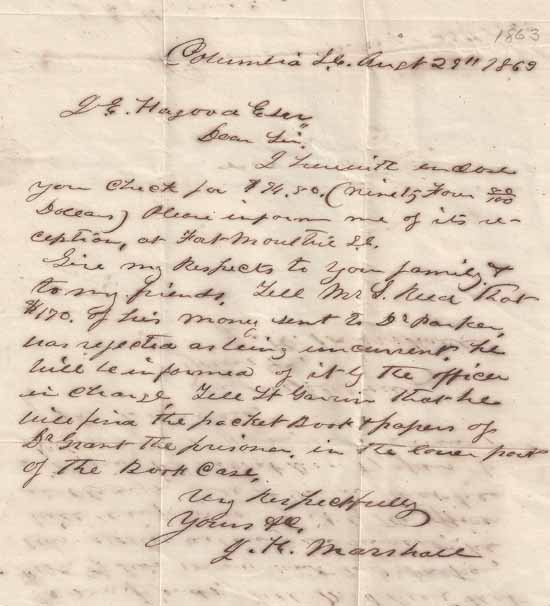 1863
Columbia S.C. Augt 29" 1863
J. E. Hagood Esqr
Dear Sir,
I herewith enclose
you Check for $94.80. (Ninety Four 80/100
Dollars) Please inform me of its re-
ception, at Fort Moultrie S.C.
Give my Respects to your family &
to my friends. Tell Mr J. Reed that
$170. of his money sent to Dr Parker,
was rejected as being uncurrent he
will be informed of it by the officer
in charge. Tell Lt Garvin that he
will find the pocket Book & papers of
Dr Grant the prisoner, in the lower part
of the Book Case,
Very Respectfully
Yours &c.
J. H. Marshall